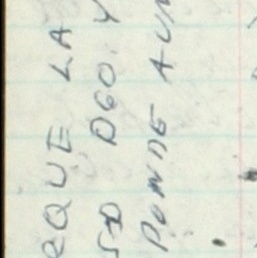 EQUE LA
SD DGO. Y
PONDE AUN